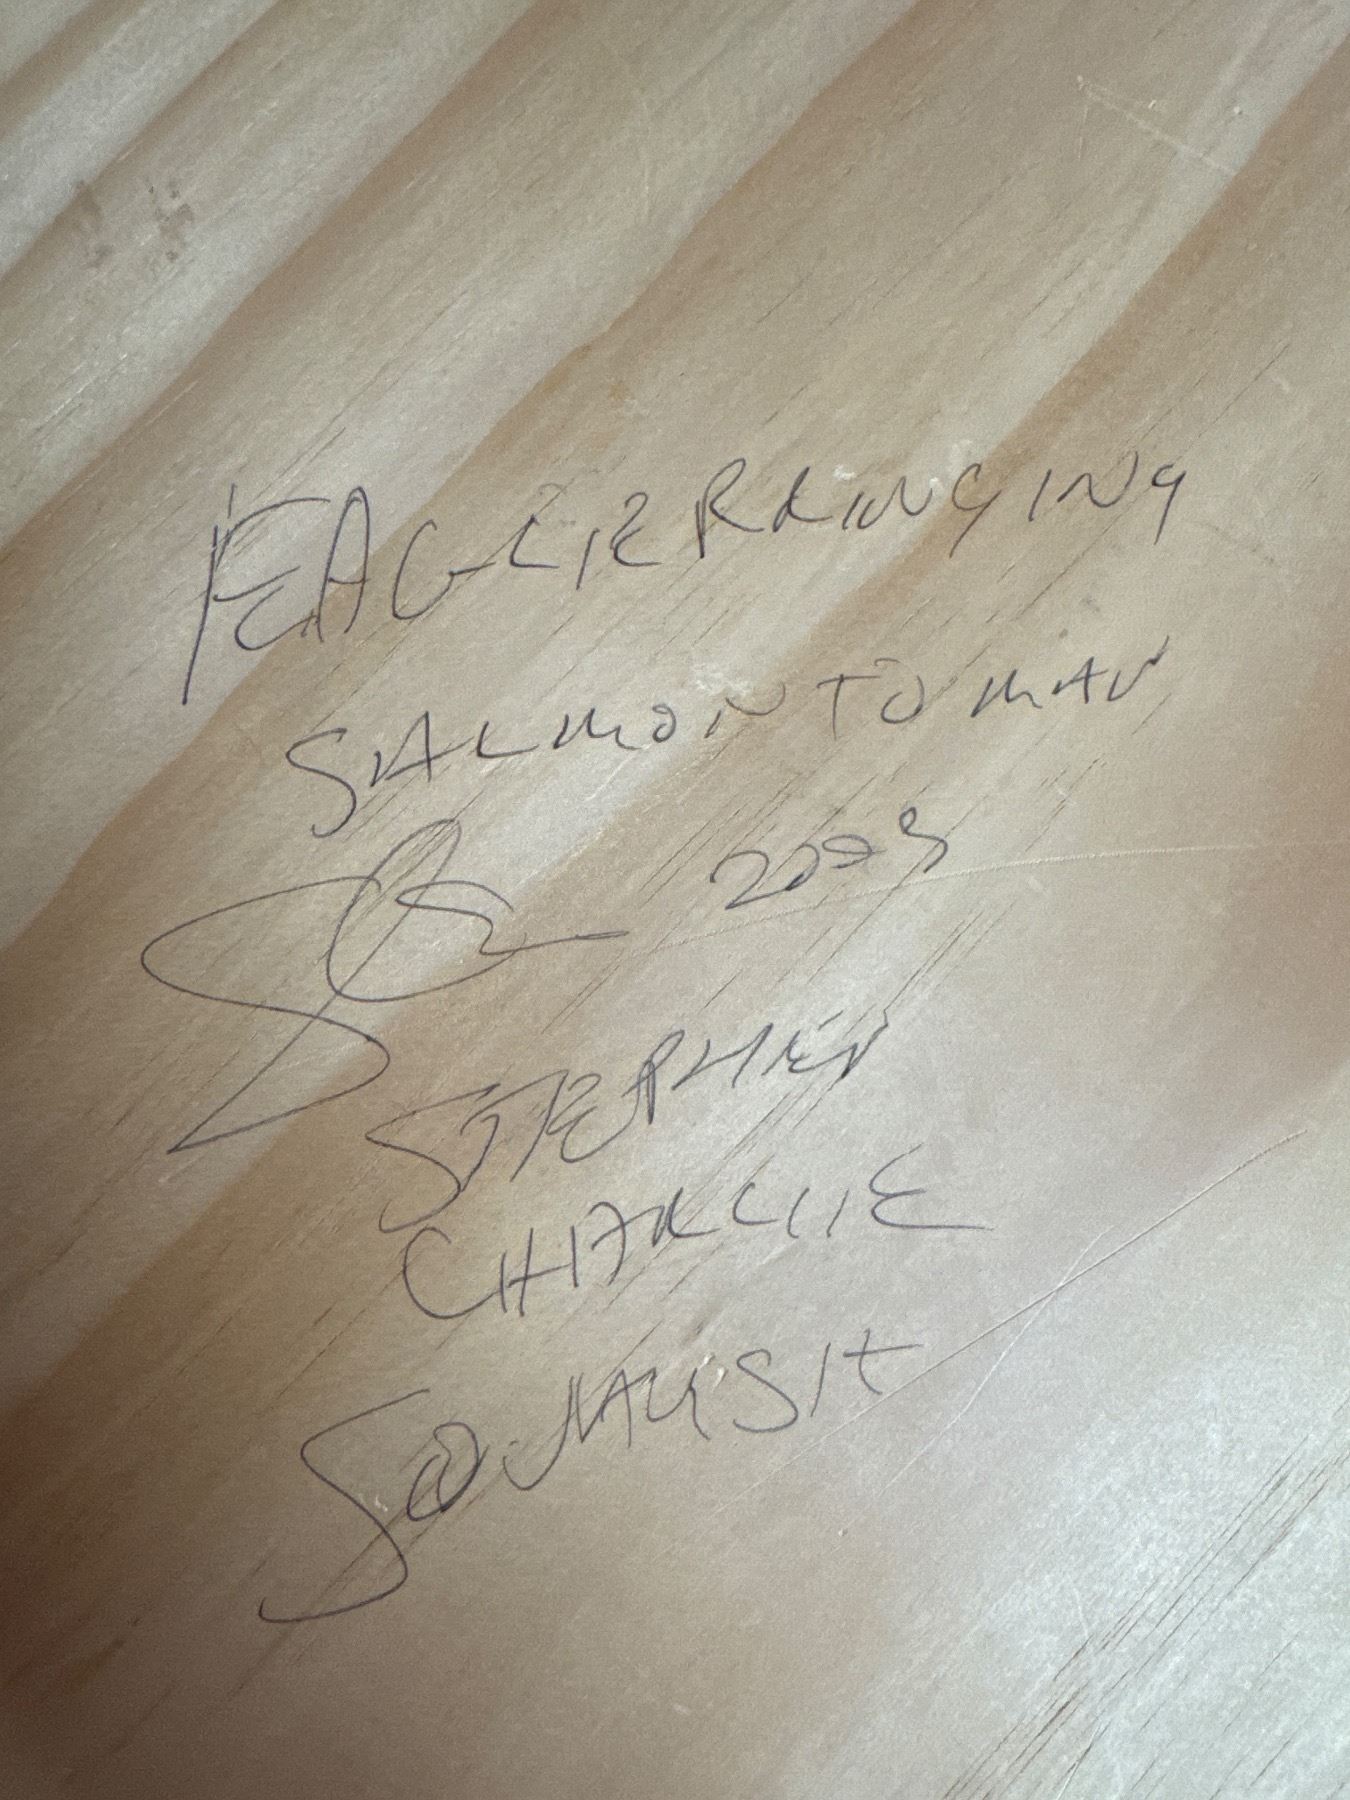 EAGLE BRINGING
SALMON TO MAN
2009
STEPHEN
CHARLIE
SQUAMISH